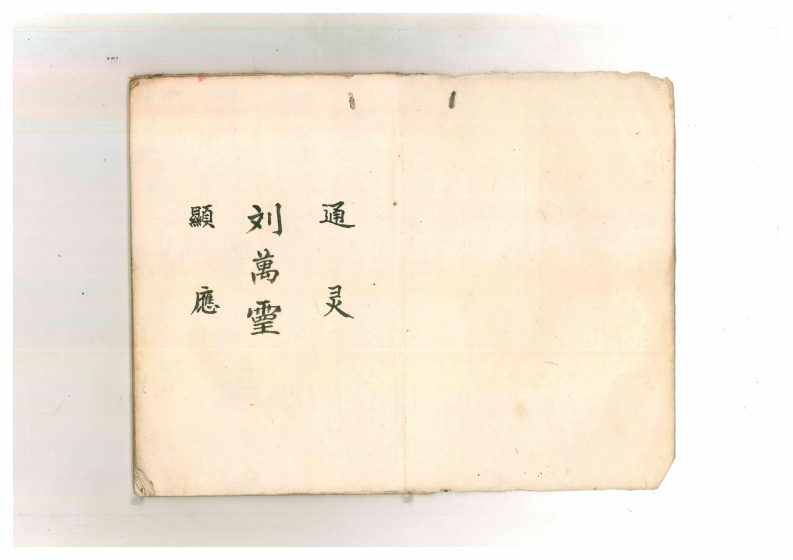 通灵
刘萬霊
顯應